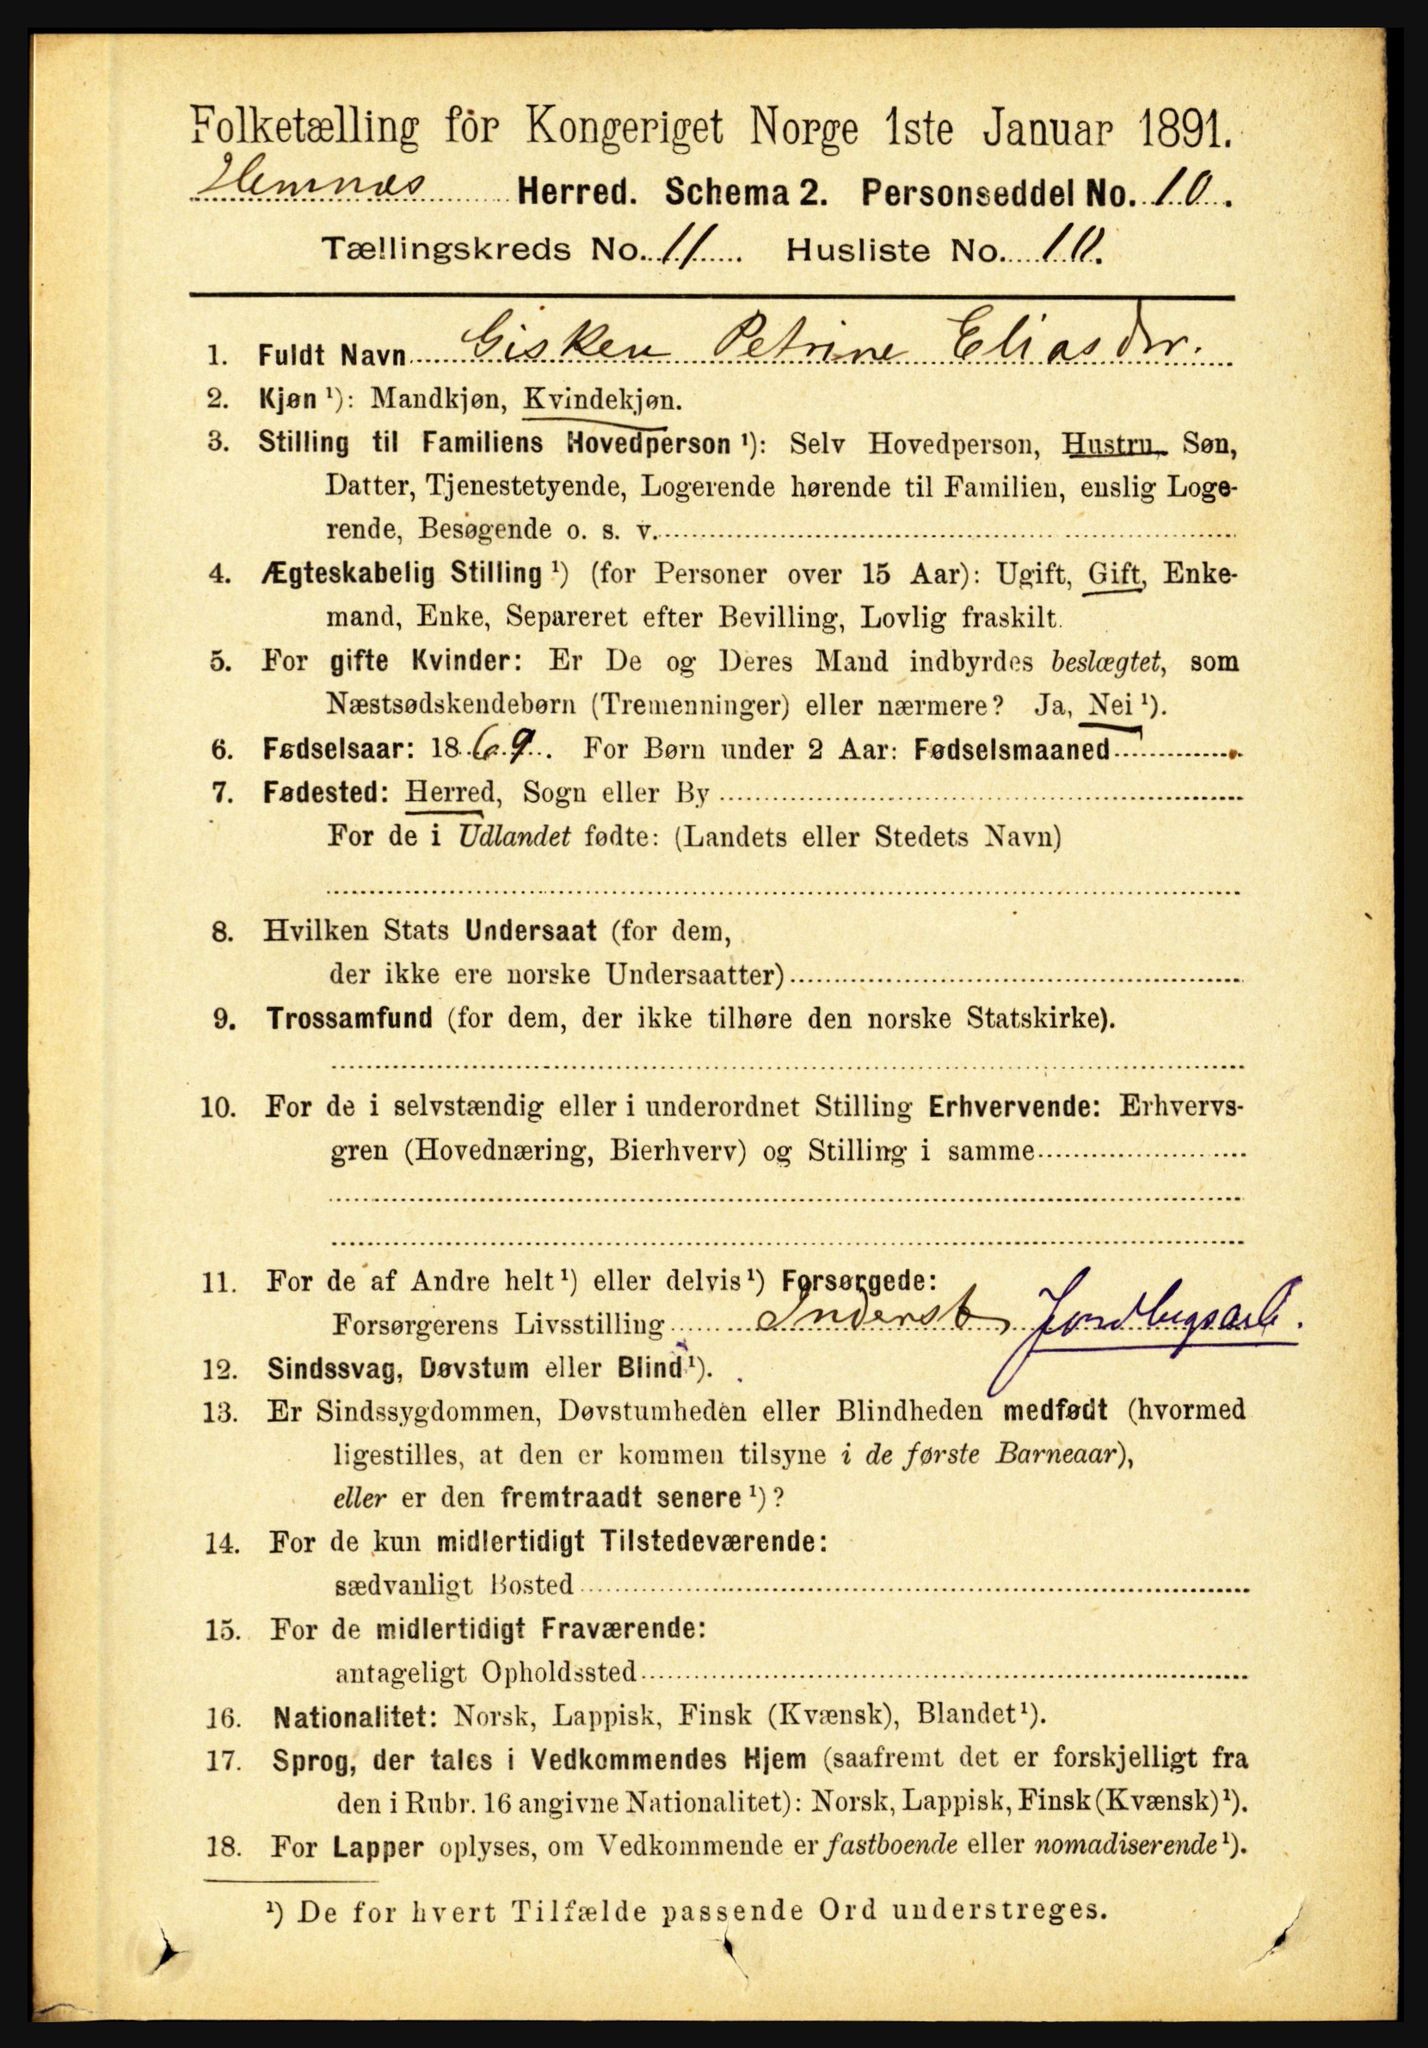 Folketælling for Kongeriget Norge 1ste Januar 1891.
Hemnæs Herred. Schema 2. Personseddel No. 10.
Tællingskreds No. 11. Husliste No. 10.
1. Fuldt Navn Gisken Petrine Eliasdtr.
2. Kjøn ¹): Mandkjøn, Kvindekjøn.
3. Stilling til Familiens Hovedperson ¹): Selv Hovedperson, Hustru, Søn,
Datter, Tjenestetyende, Logerende hørende til Familien, enslig Loge-
rende, Besøgende o. s. v.
4. Ægteskabelig Stilling ¹) (for Personer over 15 Aar): Ugift, Gift, Enke-
mand, Enke, Separeret efter Bevilling, Lovlig fraskilt.
5. For gifte Kvinder: Er De og Deres Mand indbyrdes beslægtet, som
Næstsødskendebørn (Tremenninger) eller nærmere? Ja, Nei ¹).
6. Fødselsaar: 1869. For Børn under 2 Aar: Fødselsmaaned
7. Fødested: Herred, Sogn eller By
For de i Udlandet fødte: (Landets eller Stedets Navn)
8. Hvilken Stats Undersaat (for dem,
der ikke ere norske Undersaatter)
9. Trossamfund (for dem, der ikke tilhøre den norske Statskirke).
10. For de i selvstændig eller i underordnet Stilling Erhvervende: Erhvervs-
gren (Hovednæring, Bierhverv) og Stilling i samme
11. For de af Andre helt ¹) eller delvis ¹) Forsørgede:
Forsørgerens Livsstilling Inderst, Jordbugsarb.
12. Sindssvag, Døvstum eller Blind ¹).
13. Er Sindssygdommen, Døvstumheden eller Blindheden medfødt (hvormed
ligestilles, at den er kommen tilsyne i de første Barneaar),
eller er den fremtraadt senere ¹)?
14. For de kun midlertidigt Tilstedeværende:
sædvanligt Bosted
15. For de midlertidigt Fraværende:
antageligt Opholdssted
16. Nationalitet: Norsk, Lappisk, Finsk (Kvænsk), Blandet ¹).
17. Sprog, der tales i Vedkommendes Hjem (saafremt det er forskjelligt fra
den i Rubr. 16 angivne Nationalitet): Norsk, Lappisk, Finsk (Kvænsk) ¹).
18. For Lapper oplyses, om Vedkommende er fastboende eller nomadiserende ¹).
¹) De for hvert Tilfælde passende Ord understreges.